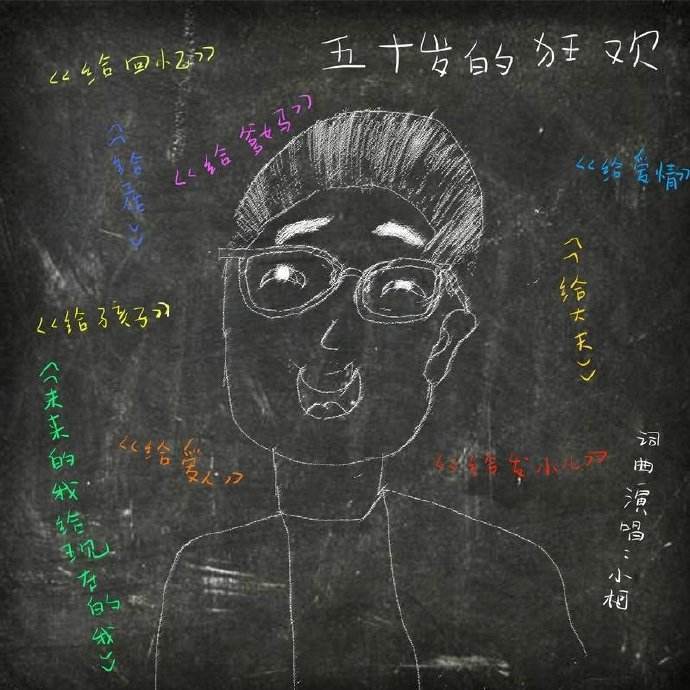 五十岁的狂欢
《给回忆》
《给爹妈》
《给爱情》
《给大夫》
《给孩子》
《未来的我给现在的我》
《给爱人》
《给发小儿》
词曲演唱：小相